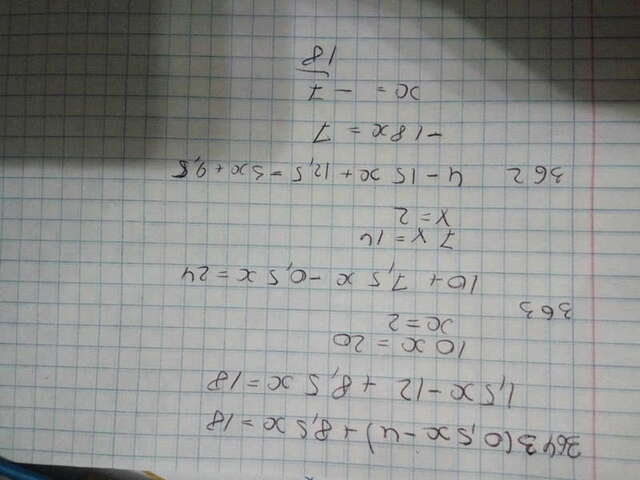 364 3(0,5x-4)+8,5x=18
1,5x-12+8,5x=18
10x=20
x=2
363
10+7,5x-0,5x=24
7x=14
x=2
362 4-15x+12,5=3x+9,5
-18x=7
x=-7
18